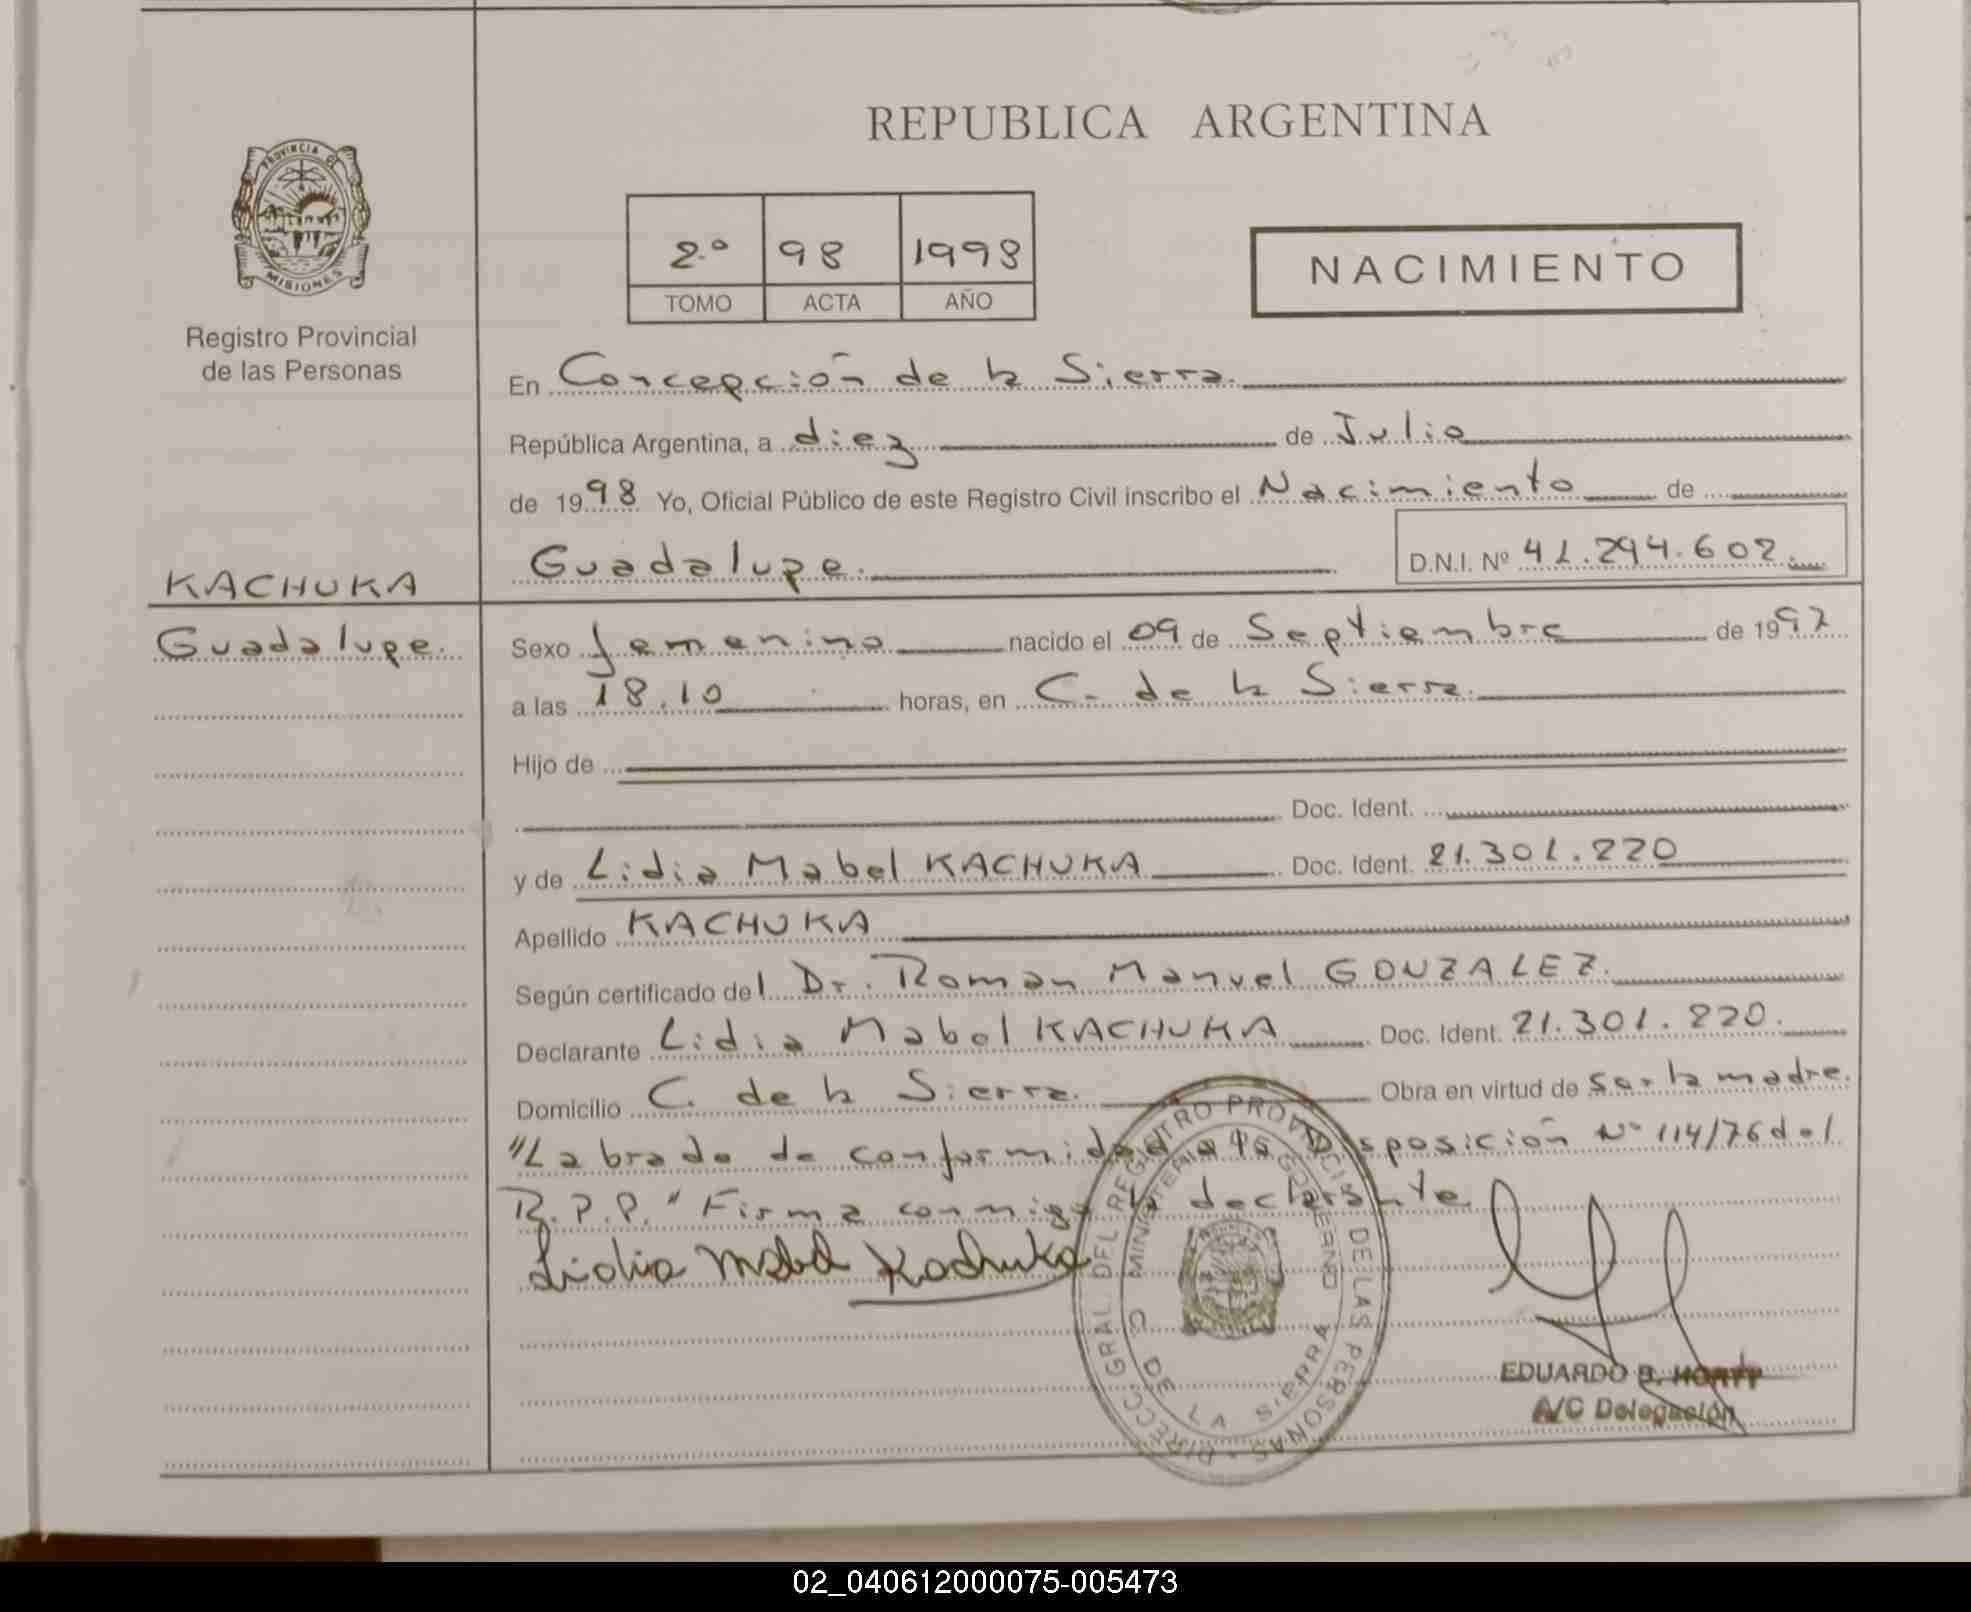 REPUBLICA ARGENTINA
PROVINCIA DE
MISIONES
Registro Provincial
de las Personas
2º 98 1998
TOMO ACTA AÑO
NACIMIENTO
En Concepción de la Sierra.
República Argentina, a diez de Julio
de 1998 Yo, Oficial Público de este Registro Civil inscribo el Nacimiento de
Guadalupe. D.N.I. Nº 41.294.602.
KACHUKA
Guadalupe.
Sexo femenino nacido el 09 de Septiembre de 1997
a las 18.10 horas, en C. de la Sierra.
Hijo de
Doc. Ident.
y de Lidia Mabel KACHUKA Doc. Ident. 21.301.220
Apellido KACHUKA
Según certificado del Dr. Roman Manuel GONZALEZ.
Declarante Lidia Mabel KACHUKA Doc. Ident. 21.301.220.
Domicilio C. de la Sierra. Obra en virtud de ser la madre.
"Labrado de conformidad a la Disposición Nº 114/76 del
R.P.P." Firma conmigo la declarante
Lidia Mabel Kachuka
DIRECC. GRAL. DEL REGISTRO PROVINCIAL DE LAS PERSONAS
MINISTERIO DE GOBIERNO
C. DE LA SIERRA
EDUARDO
A/C Delegación
02_040612000075-005473